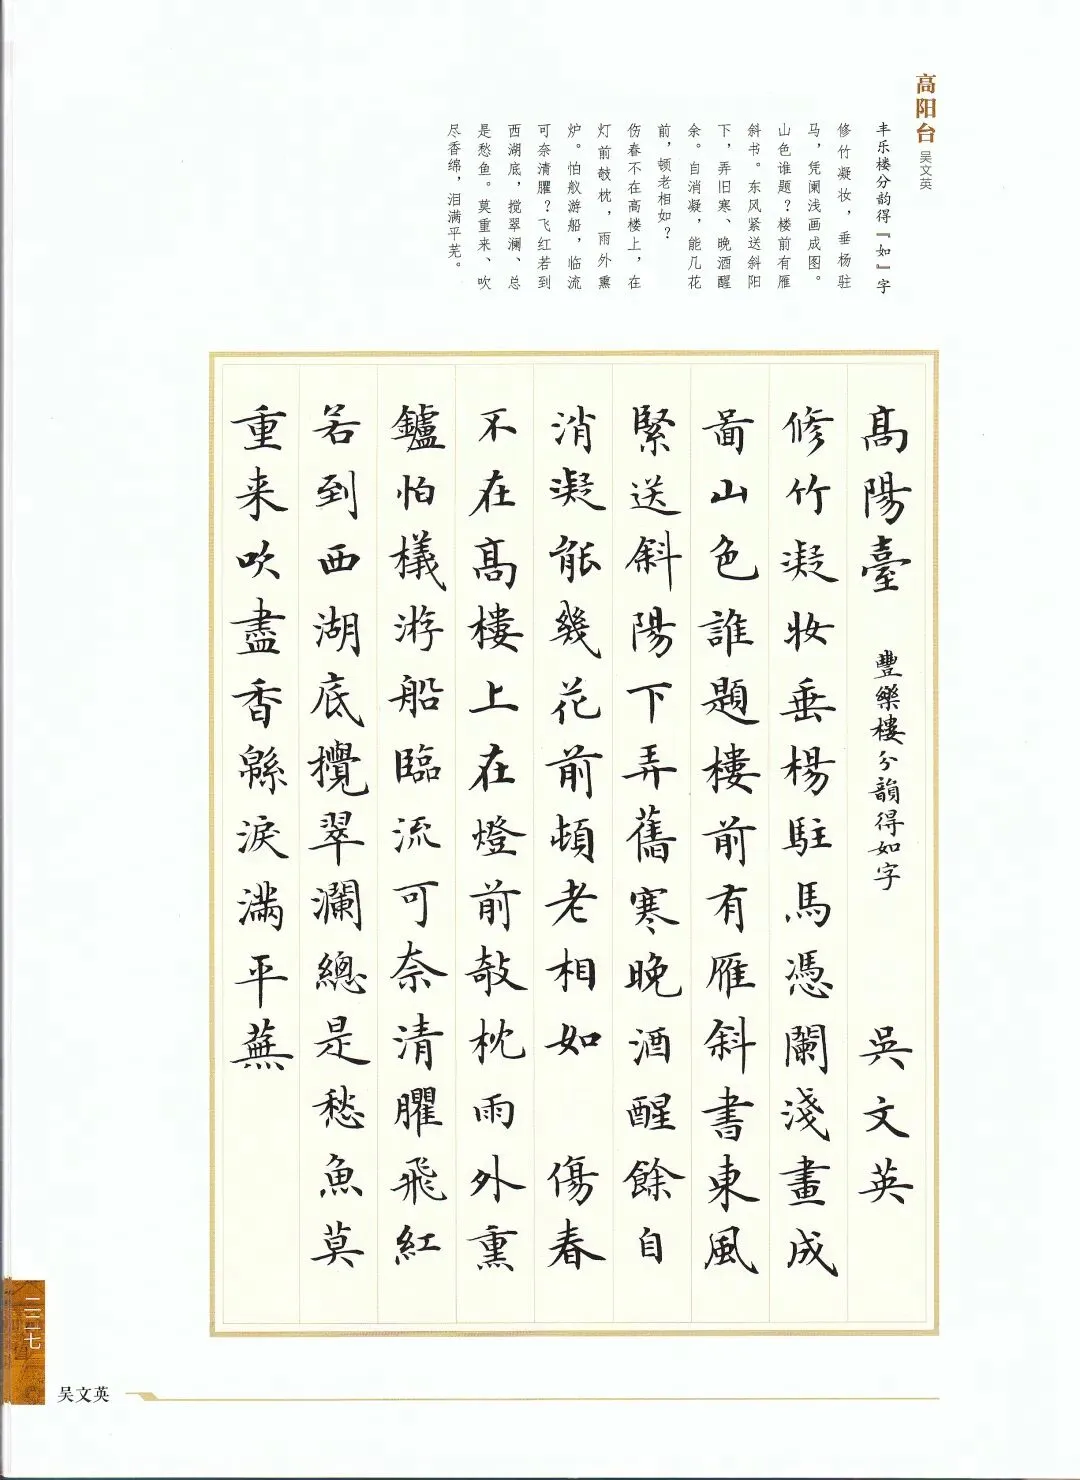 高阳台
吴文英
丰乐楼分韵得『如』字
修竹凝妆，垂杨驻
马，凭阑浅画成图。
山色谁题？楼前有雁
斜书。东风紧送斜阳
下，弄旧寒、晚酒醒
余。自消凝，能几花
前，顿老相如？
伤春不在高楼上，在
灯前攲枕，雨外熏
炉。怕舣游船，临流
可奈清臞？飞红若到
西湖底，搅翠澜、总
是愁鱼。莫重来、吹
尽香绵，泪满平芜。
高陽臺 豐樂樓分韻得如字 吳文英
修竹凝妝垂楊駐馬憑闌淺畫成
啚山色誰題樓前有雁斜書東風
緊送斜陽下弄舊寒晚酒醒餘自
消凝能幾花前頓老相如 傷春
不在高樓上在燈前攲枕雨外熏
鑪怕檥游船臨流可奈清臞飛紅
若到西湖底攪翠瀾總是愁魚莫
重来吹盡香緜淚滿平蕪
吴文英